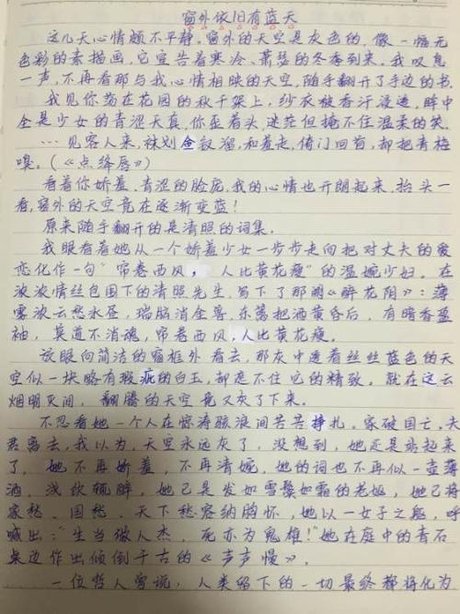 窗外依旧有蓝天
这几天心情颇不平静。窗外的天空是灰色的,像一幅无
色彩的素描画,它宣告着寒冷、萧瑟的冬季到来。我叹息
一声,不再看那与我心情相映的天空,随手翻开了手边的书。
我见你荡在花园的秋千架上,纱衣被香汗浸透,眸中
全是少女的青涩天真,你歪着头,迷茫但掩不住温柔的笑。
…见客入来,袜刬金钗溜,和羞走,倚门回首,却把青梅
嗅。(《点绛唇》)
看着你娇羞、青涩的脸庞,我的心情也开朗起来,抬头一
看,窗外的天空竟在逐渐变蓝!
原来随手翻开的是清照的词集。
我眼看着她从一个娇羞少女一步步走向把对丈夫的爱
恋化作一句“帘卷西风, 人比黄花瘦”的温婉少妇。在
浓浓情丝包围下的清照先生,写下了那阕《醉花阴》:薄
雾浓云愁永昼,瑞脑消金兽,东篱把酒黄昏后,有暗香盈
袖,莫道不消魂,帘卷西风,人比黄花瘦。
放眼向简洁的窗框外看去,那灰中透着丝丝蓝色的天
空似一块略有瑕疵的白玉,却遮不住它的精致,就在这云
烟明灭间,翻腾的天空竟又灰了下来。
不忍看她一个人在惊涛骇浪间苦苦挣扎。家破国亡,夫
君离去,我以为,天空永远灰了,没想到,她还是站起来
了。她不再娇羞,不再清婉,她的词也不再似一壶薄
酒,浅饮辄醉,她已是发如雪鬓如霜的老妪,她已将
家愁、国愁、天下愁容纳胸怀,她以一女子之躯,呼
喊出:“生当做人杰,死亦为鬼雄!”她在庭中的青石
桌边作出倾倒千古的《声声慢》。
一位哲人曾说,人类留下的一切最终都将化为